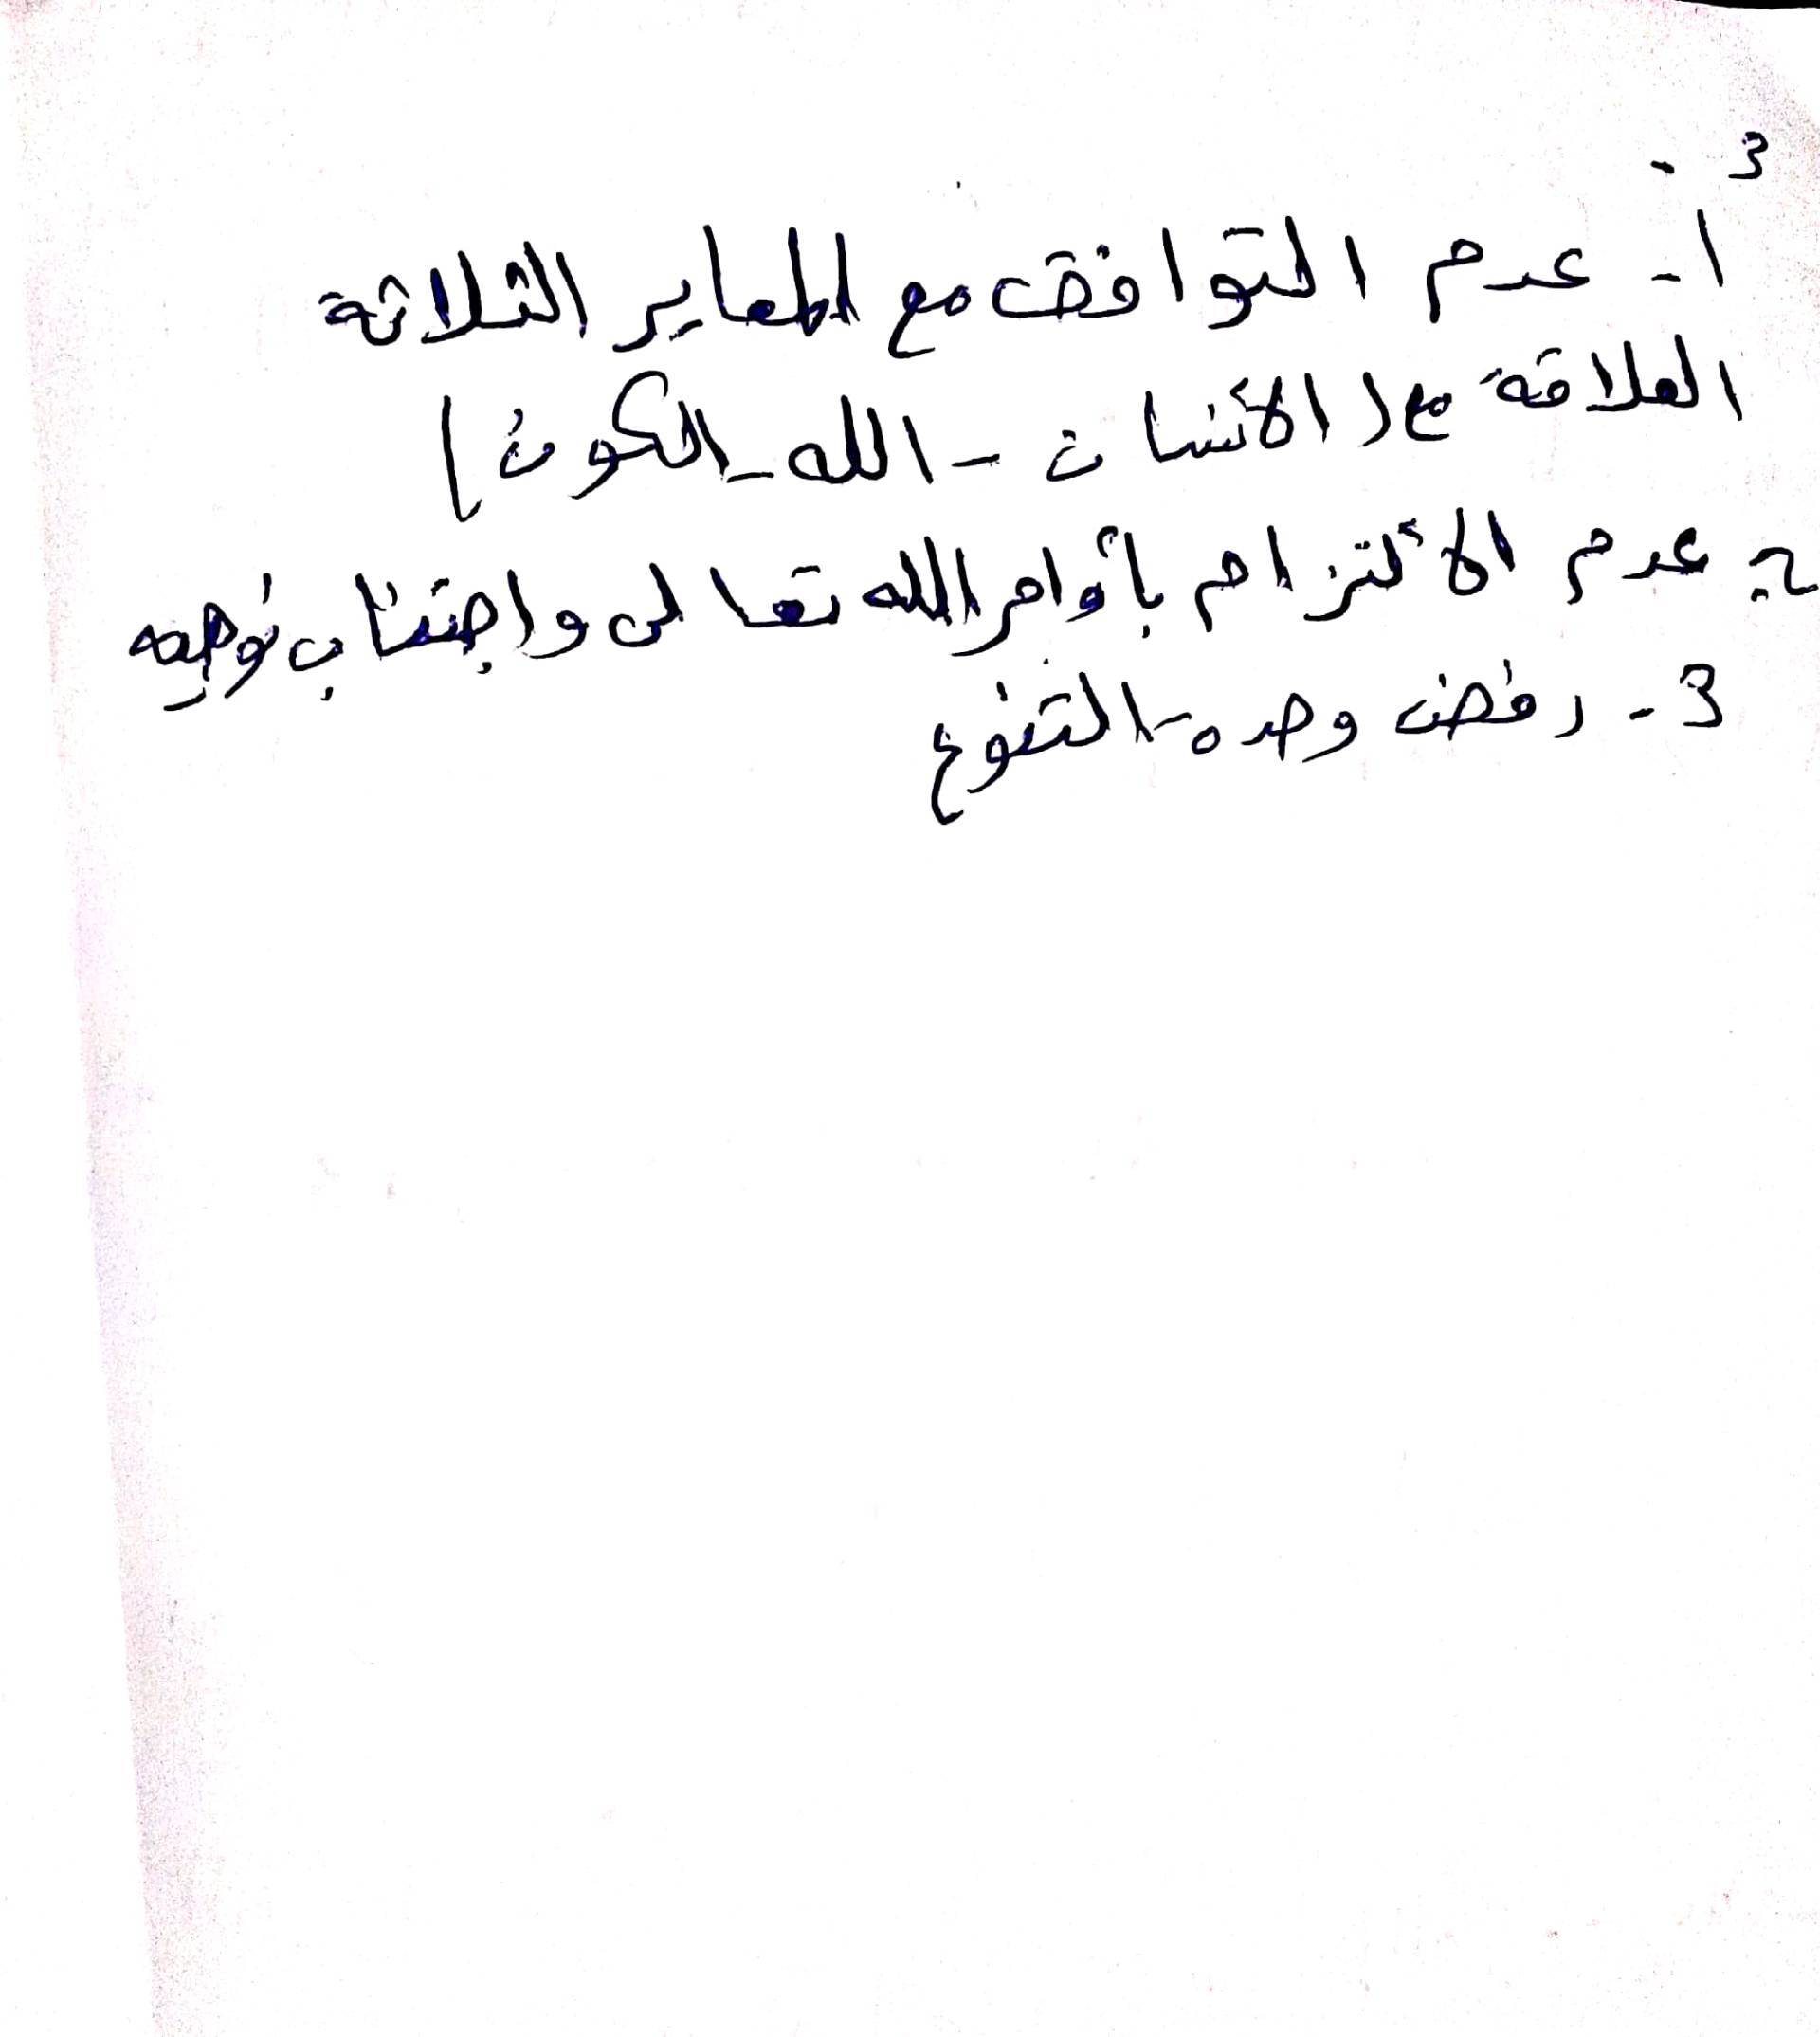 3 -
1- عدم التوافق مع المعاير الثلاثة
العلاقة مع ( الأنسان - الله - الكون )
2- عدم الألتزام بأوامر الله تعالى واجتناب نوهيه
3- رفض وحده التنوع